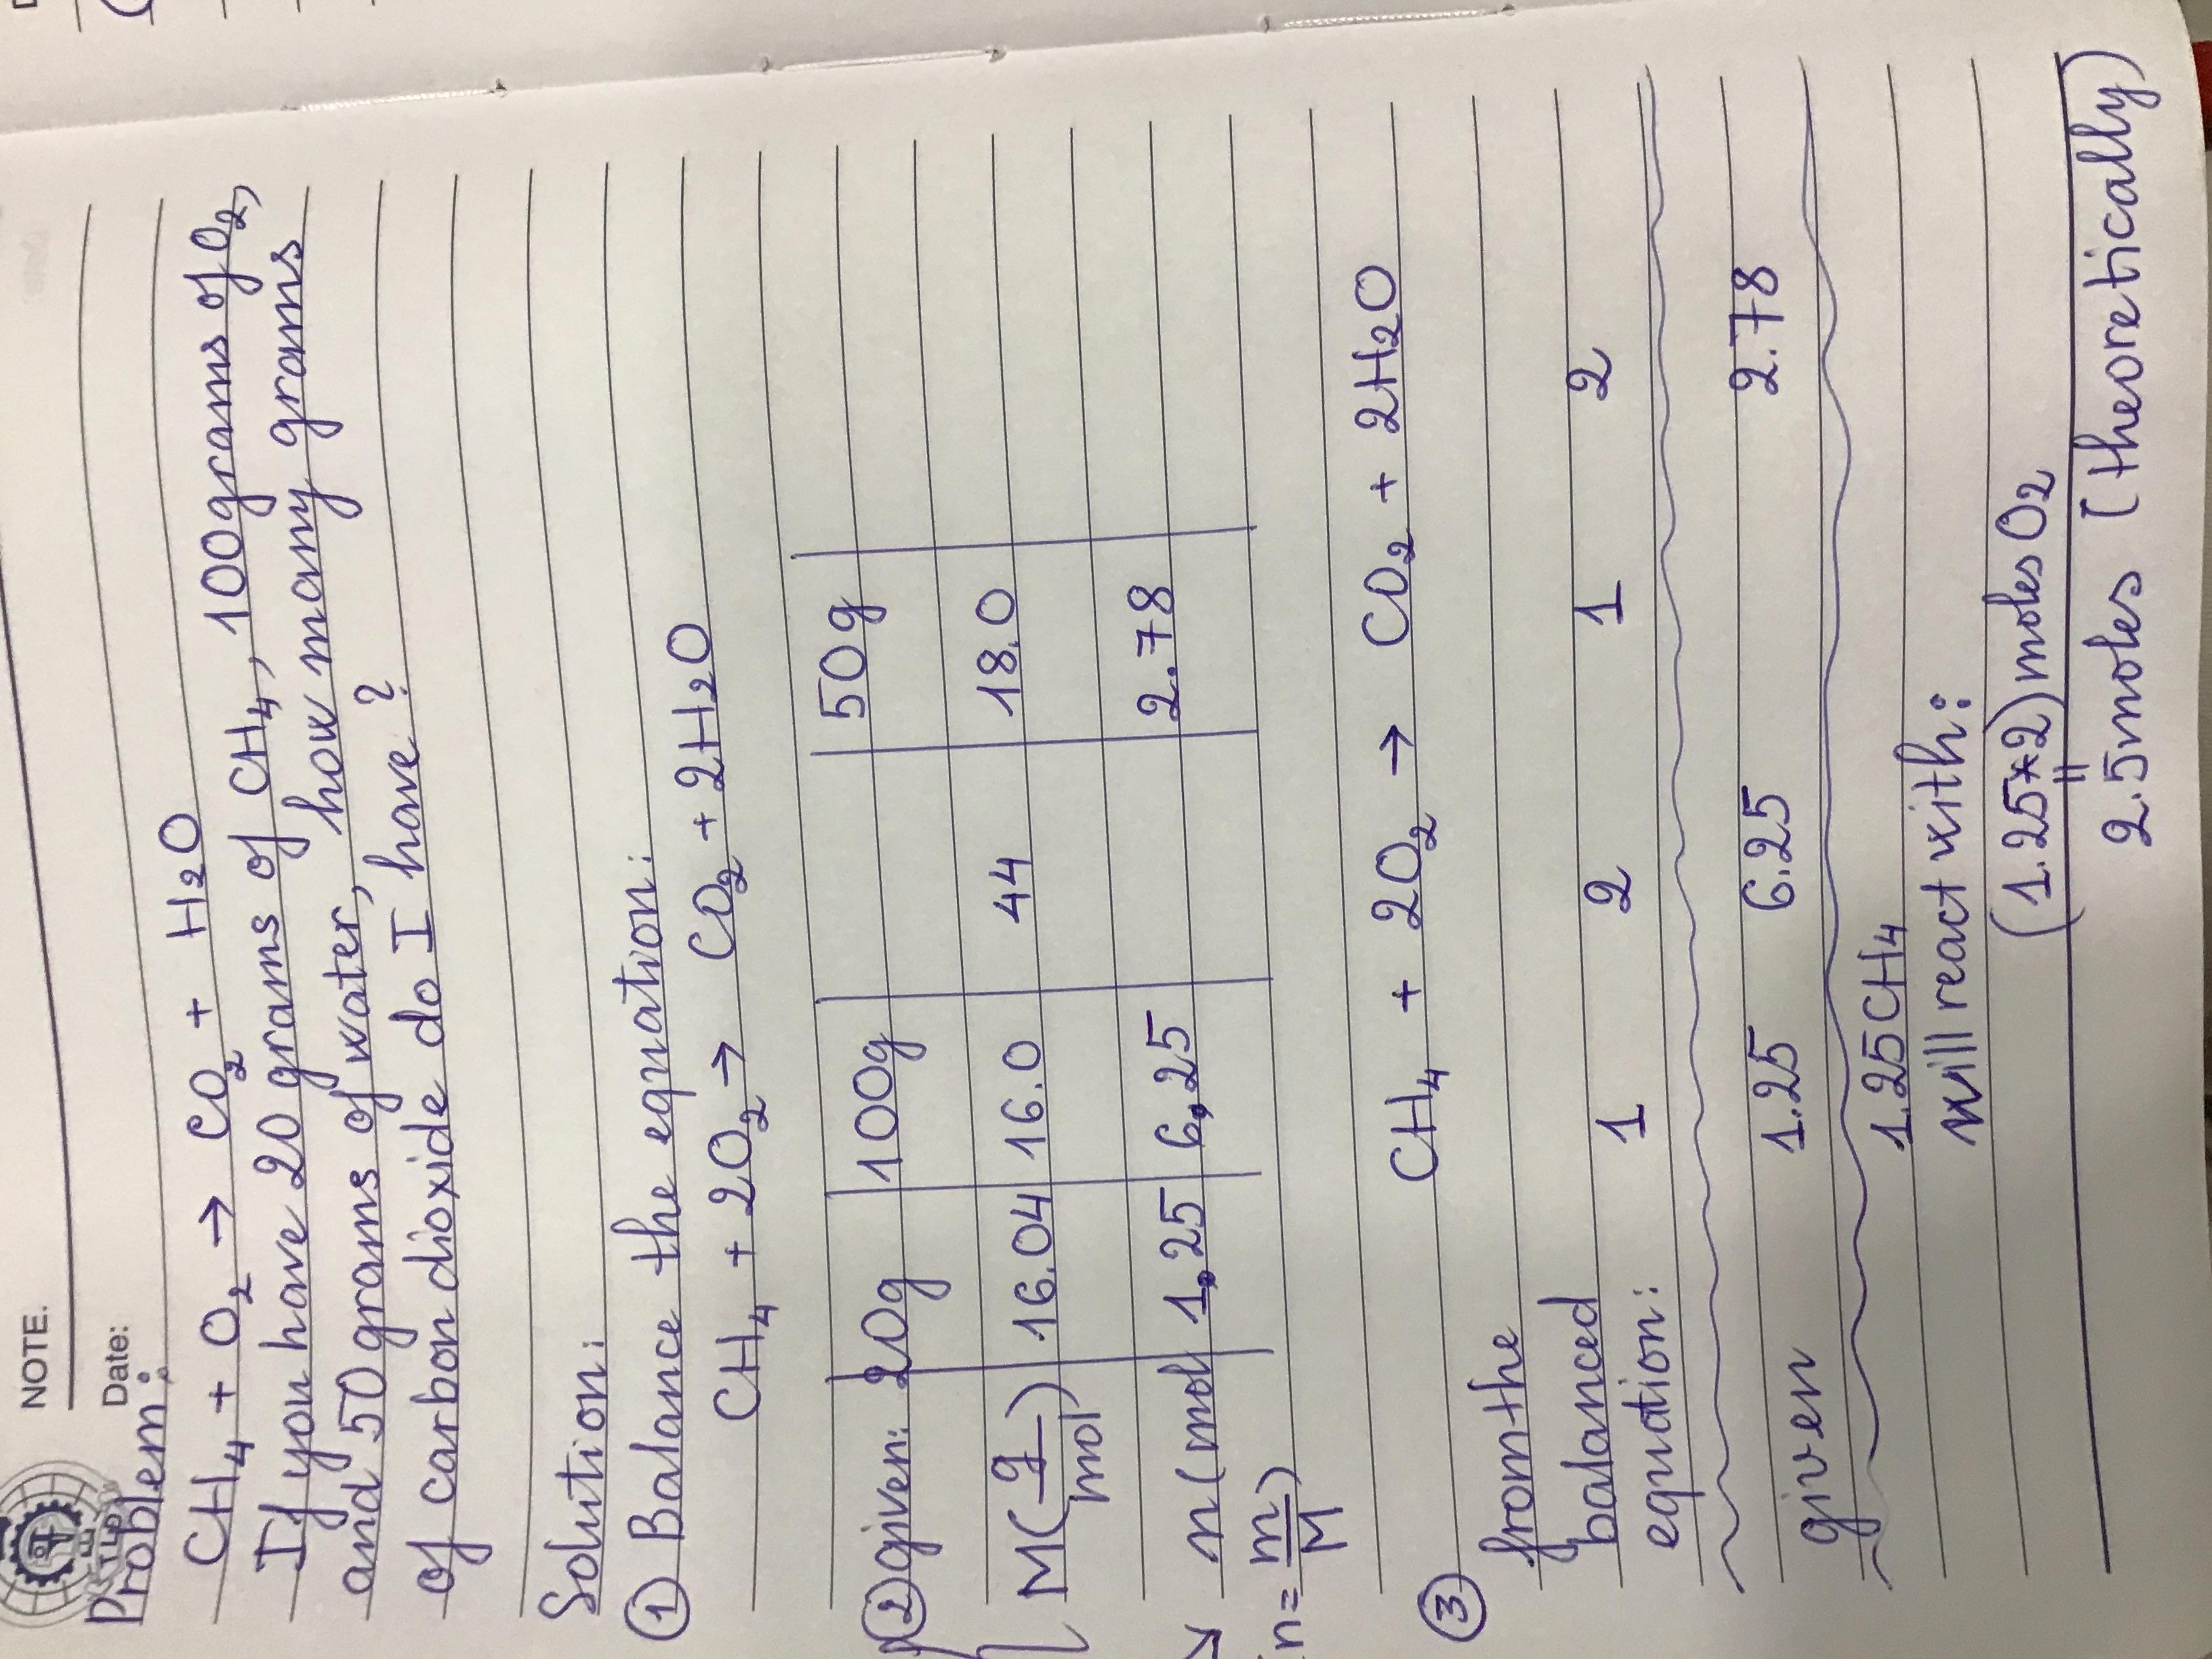 NOTE.
Date:
Problem:
CH4 + O2 → CO2 + H2O
If you have 20 grams of CH4, 100grams of O2,
and 50 grams of water, how many grams
of carbon dioxide do I have?
Solution:
① Balance the equation:
CH4 + 2O2 → CO2 + 2H2O
② given: 20g 100g 50g
M(g/mol) 16.04 16.0 44 18.0
n(mol 1,25 6,25 2.78
n=m/M)
③ CH4 + 2O2 → CO2 + 2H2O
from the
balanced 1 2 1 2
equation:
given 1.25 6.25 2.78
1.25CH4
will react with:
(1.25*2)moles O2
=
2.5moles (theoretically)